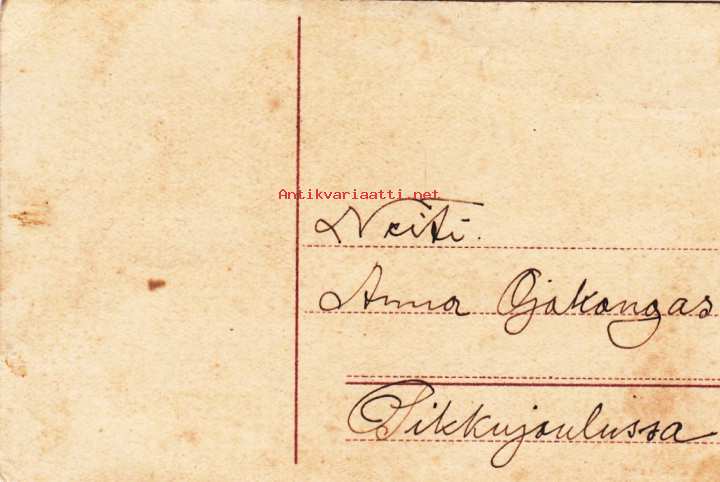 Antikvariaatti.net
Neiti.
Anna Ojakangas
Pikkujoulussa